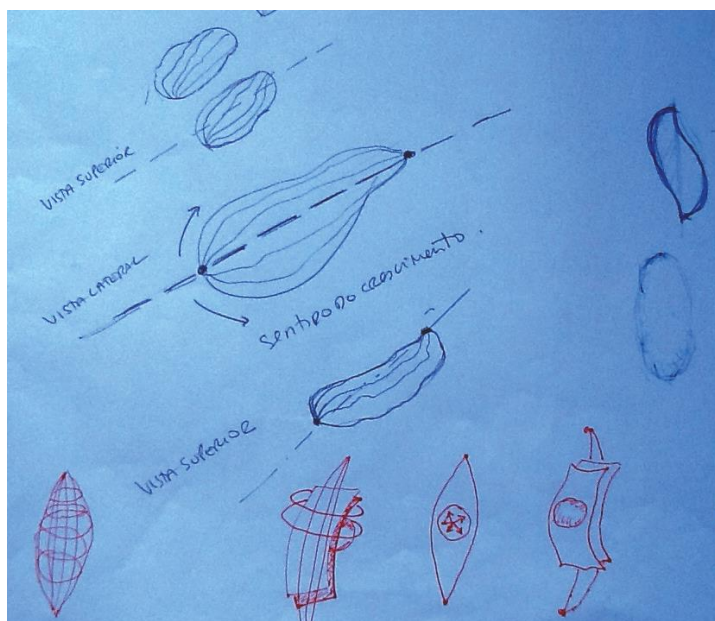 VISTA SUPERIOR
VISTA LATERAL
SENTIDO DO CRESCIMENTO.
VISTA SUPERIOR